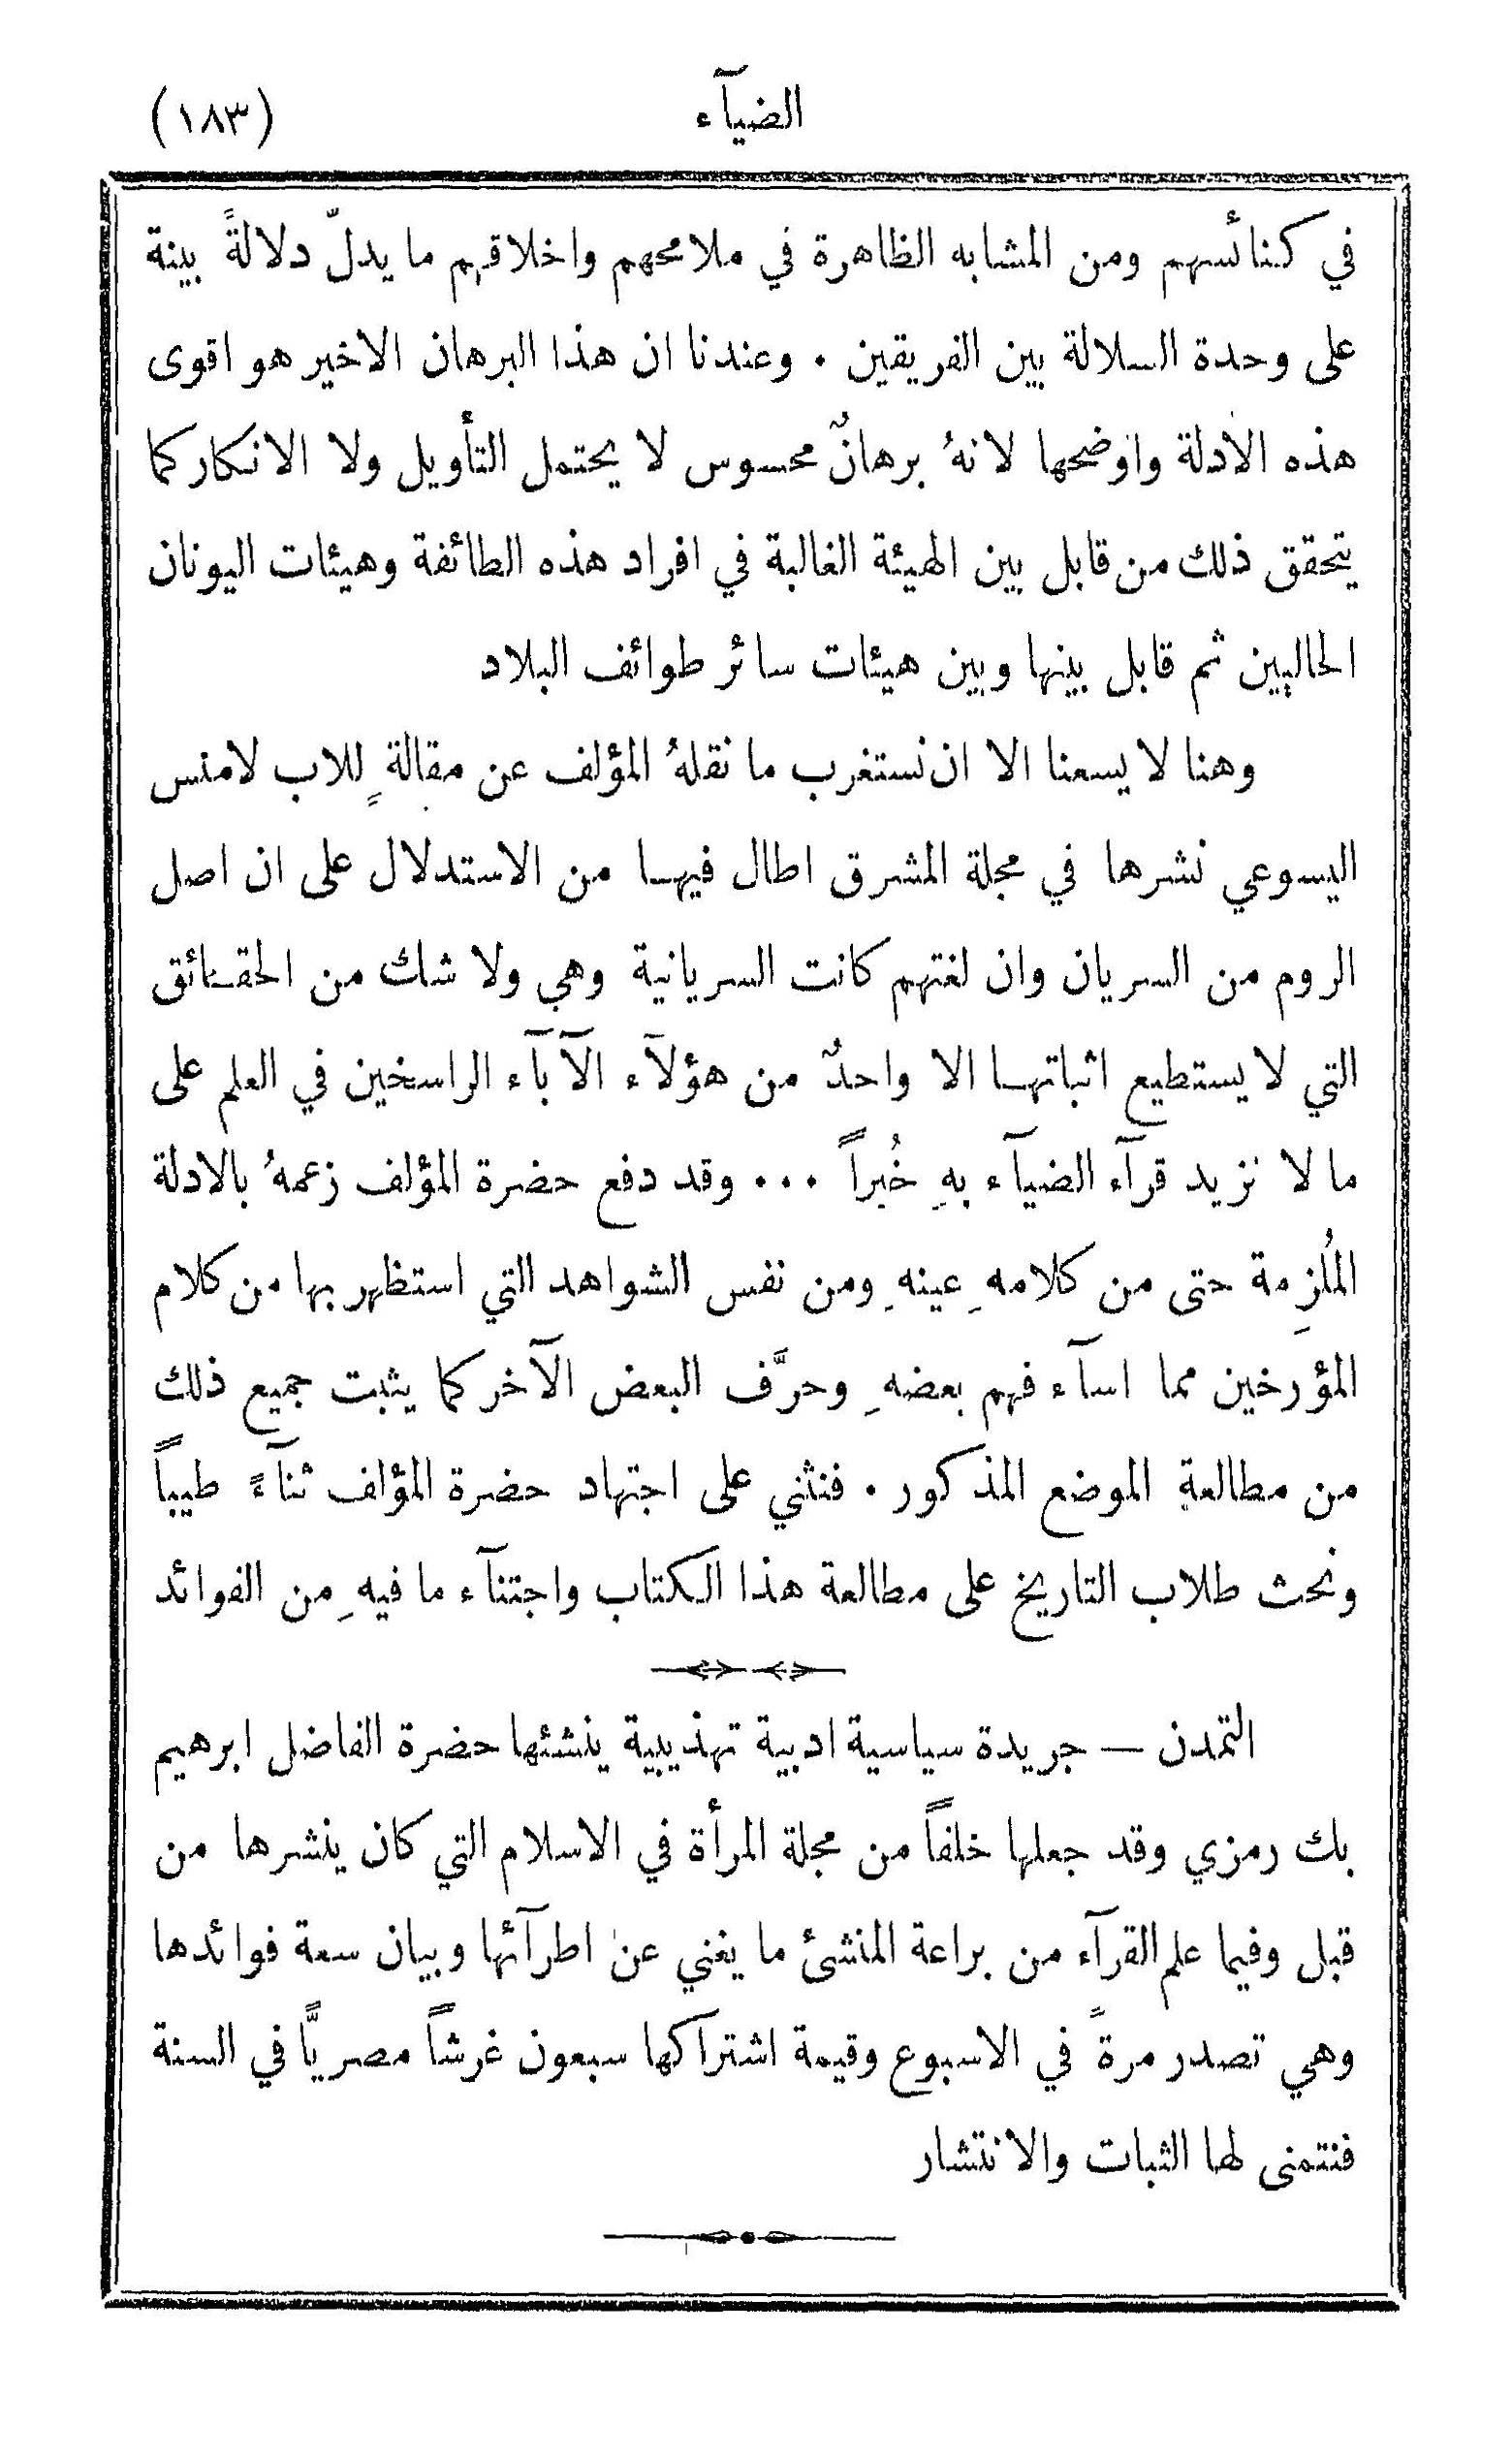 الضيآء
(١٨٣)
في كنائسهم ومن المشابه الظاهرة في ملامحهم واخلاقهم ما يدلّ دلالةً بينة
على وحدة السلالة بين الفريقين . وعندنا ان هذا البرهان الاخير هو اقوى
هذه الادلة واوضحها لانهُ برهانٌ محسوس لا يحتمل التأويل ولا الانكار كما
يتحقق ذلك من قابل بين الهيئة الغالبة في افراد هذه الطائفة وهيئات اليونان
الحاليين ثم قابل بينها وبين هيئات سائر طوائف البلاد
وهنا لا يسعنا الا ان نستغرب ما نقلهُ المؤلف عن مقالةٍ للاب لامنس
اليسوعي نشرها في مجلة المشرق اطال فيها من الاستدلال على ان اصل
الروم من السريان وان لغتهم كانت السريانية وهي ولا شك من الحقائق
التي لا يستطيع اثباتها الا واحدٌ من هؤلآء الآبآء الراسخين في العلم على
ما لا نزيد قرآء الضيآء بهِ خُبراً ... وقد دفع حضرة المؤلف زعمهُ بالادلة
المُلزِمة حتى من كلامهِ عينهِ ومن نفس الشواهد التي استظهر بها من كلام
المؤرخين مما اسآء فهم بعضهِ وحرَّف البعض الآخر كما يثبت جميع ذلك
من مطالعة الموضع المذكور . فنثني على اجتهاد حضرة المؤلف ثنآءً طيباً
ونحث طلاب التاريخ على مطالعة هذا الكتاب واجتنآء ما فيهِ من الفوائد
التمدن — جريدة سياسية ادبية تهذيبية ينشئها حضرة الفاضل ابرهيم
بك رمزي وقد جعلها خلفاً من مجلة المرأة في الاسلام التي كان ينشرها من
قبل وفيما علم القرآء من براعة المنشئ ما يغني عن اطرآئها وبيان سعة فوائدها
وهي تصدر مرةً في الاسبوع وقيمة اشتراكها سبعون غرشاً مصريًّا في السنة
فنتمنى لها الثبات والانتشار